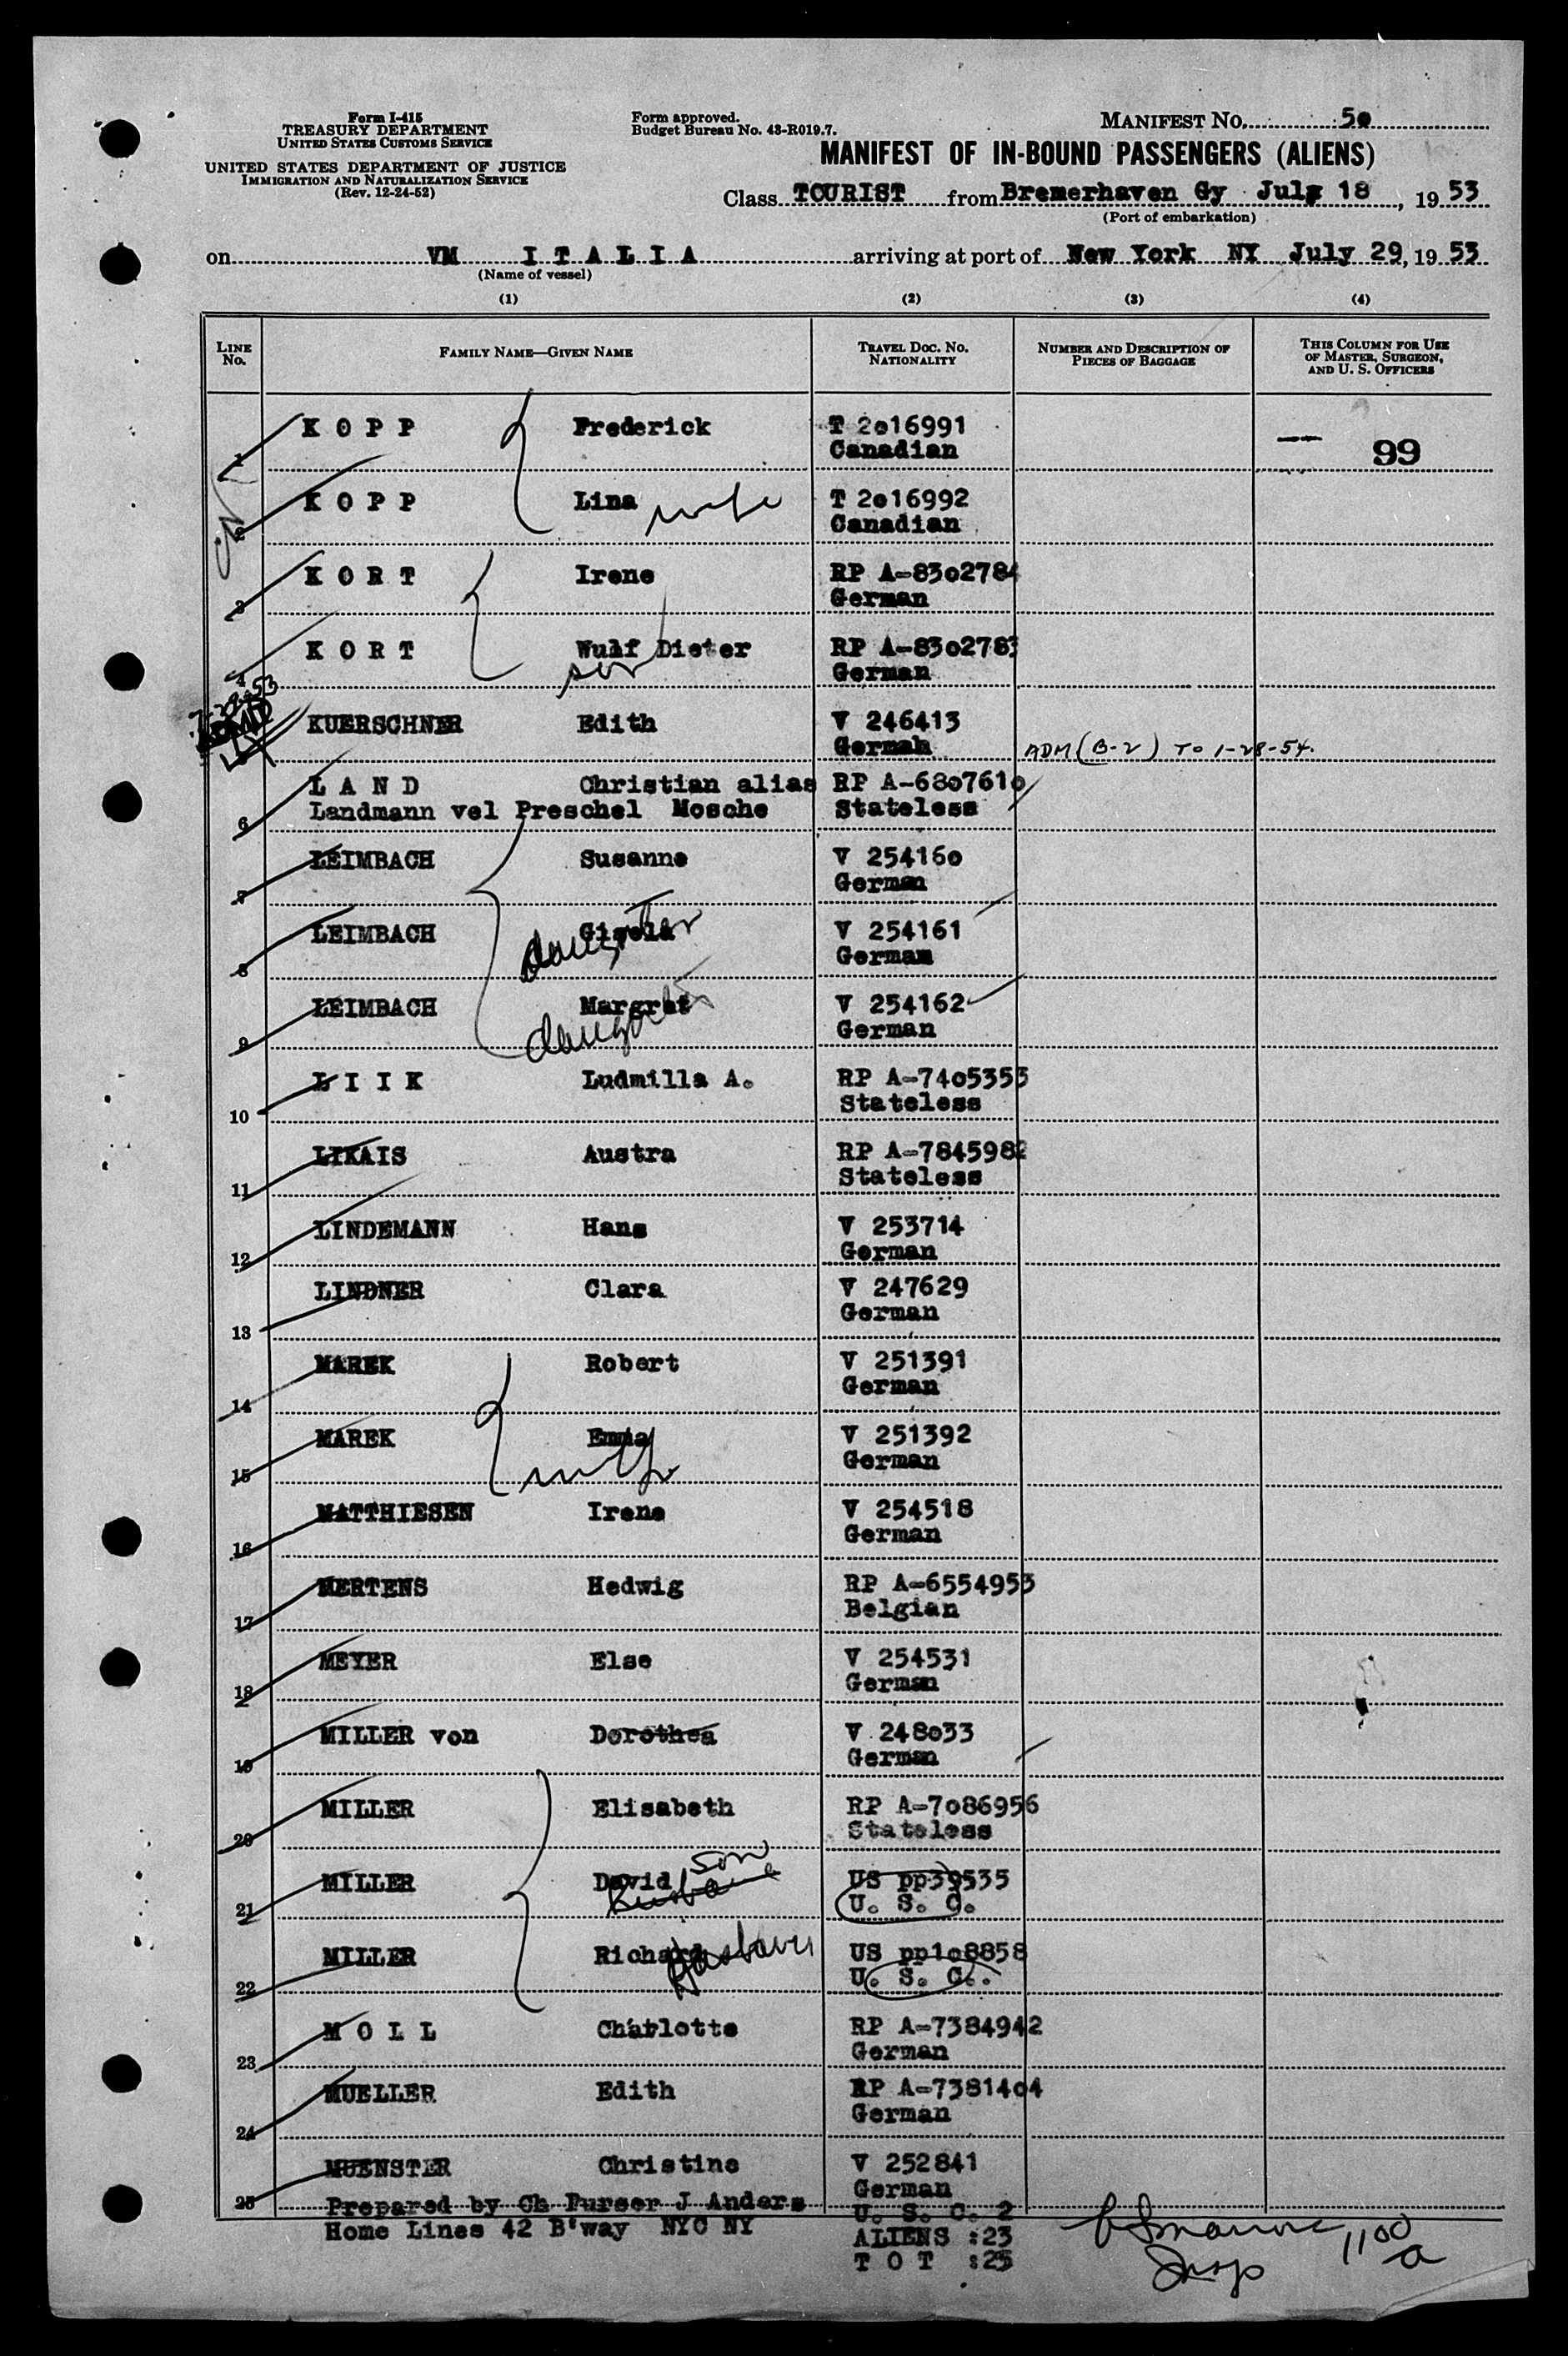 Form I-415
TREASURY DEPARTMENT
UNITED STATES CUSTOMS SERVICE
UNITED STATES DEPARTMENT OF JUSTICE
IMMIGRATION AND NATURALIZATION SERVICE
(Rev. 12-24-52)
Form approved.
Budget Bureau No. 43-R019.7.
MANIFEST NO. 50
MANIFEST OF IN-BOUND PASSENGERS (ALIENS)
Class TOURIST from Bremerhaven Gy July 18, 19 53
(Port of embarkation)
on VM ITALIA arriving at port of New York NY July 29, 19 53
(Name of vessel)
(1) (2) (3) (4)
LINE No. FAMILY NAME—GIVEN NAME TRAVEL DOC. NO. NATIONALITY NUMBER AND DESCRIPTION OF PIECES OF BAGGAGE THIS COLUMN FOR USE OF MASTER, SURGEON, AND U. S. OFFICERS
1 KOPP Frederick T 2016991
Canadian 99
2 KOPP Lina wife T 2016992
Canadian
3 KORT Irene RP A-8302784
German
4 KORT Wulf Dieter RP A-8302783
son German
7-29-53
KUERSCHNER Edith V 246413
German ADM (B-2) To 1-28-54.
LAND Christian alias RP A-6807610
6 Landmann vel Preschel Mosche Stateless
7 LEIMBACH Susanne V 254160
German
8 LEIMBACH Gisela V 254161
daughter German
9 LEIMBACH Margret V 254162
daughter German
10 LIIK Ludmilla A. RP A-7405353
Stateless
11 LIKAIS Austra RP A-7845982
Stateless
12 LINDEMANN Hans V 253714
German
13 LINDNER Clara V 247629
German
14 MAREK Robert V 251391
German
15 MAREK Emma V 251392
wife German
16 MATTHIESEN Irene V 254518
German
17 MERTENS Hedwig RP A-6554953
Belgian
18 MEYER Else V 254531
German
19 MILLER von Dorothea V 248033
German
20 MILLER Elisabeth RP A-7086956
Stateless
21 MILLER David son US pp39535
U. S. C.
22 MILLER Richard Husband US pp108858
U. S. C.
23 MOLL Charlotte RP A-7384942
German
24 MUELLER Edith RP A-7381404
German
25 MUENSTER Christine V 252841
German
Prepared by Ch Purser J Anders U. S. C. 2
Home Lines 42 B'way NYC NY ALIENS :23
TOT :25
Insp 1100 a